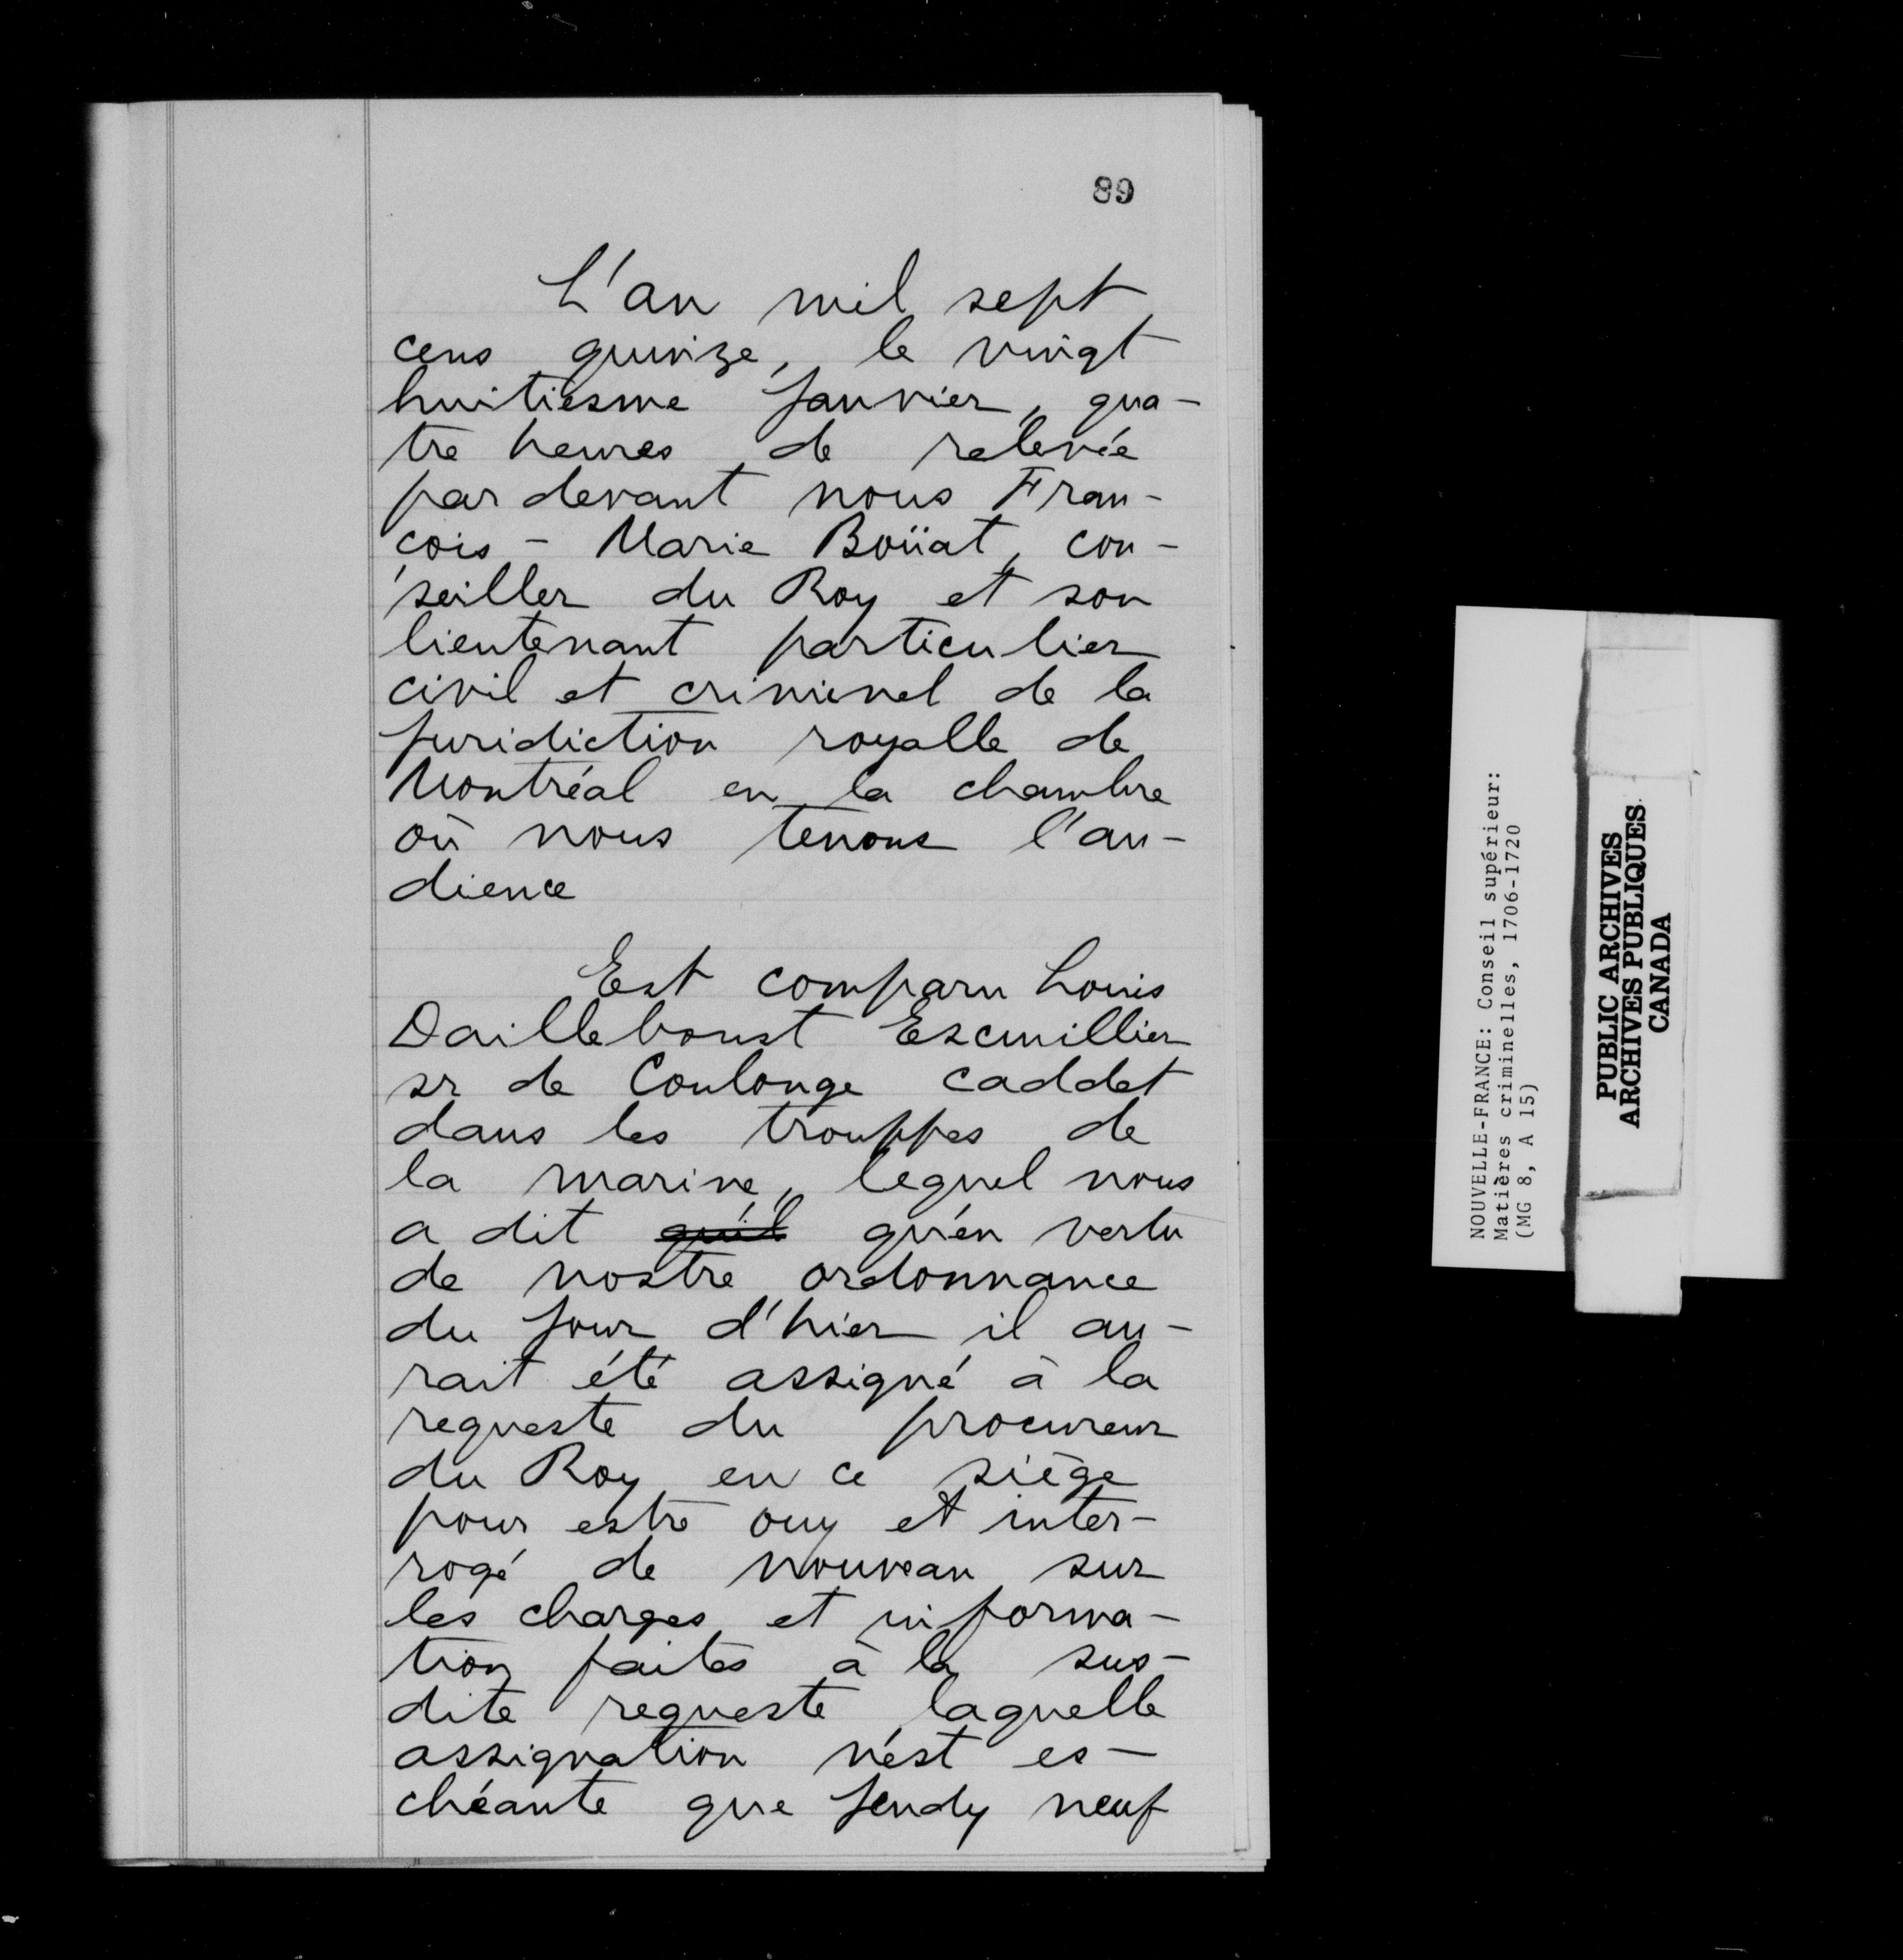 89
L'an mil sept
cens quinze, le vingt
huitiesme Janvier, qua-
tre heures de relevée
par devant nous Fran-
çois - Marie Boüat, con-
seiller du Roy et son
lieutenant particulier
civil et criminel de la
Juridiction royalle de
Montréal en la chambre
où nous tenons l'au-
dience
Est comparu Louis
Dailleboust Escuillier
sr de Coulonge caddet
dans les trouppes de
la marine, lequel nous
a dit qu'il qu'en vertu
de nostre ordonnance
du jour d'hier il au-
rait été assigné à la
requeste du procureur
du Roy en ce siège
pour estre ouy et inter-
rogé de nouveau sur
les charges et informa-
tion faites à la sus-
dite requeste laquelle
assignation n'est es-
chéante que Jeudy neuf
NOUVELLE-FRANCE: Conseil supérieur:
Matières criminelles, 1706-1720
(MG 8, A 15)
PUBLIC ARCHIVES
ARCHIVES PUBLIQUES
CANADA